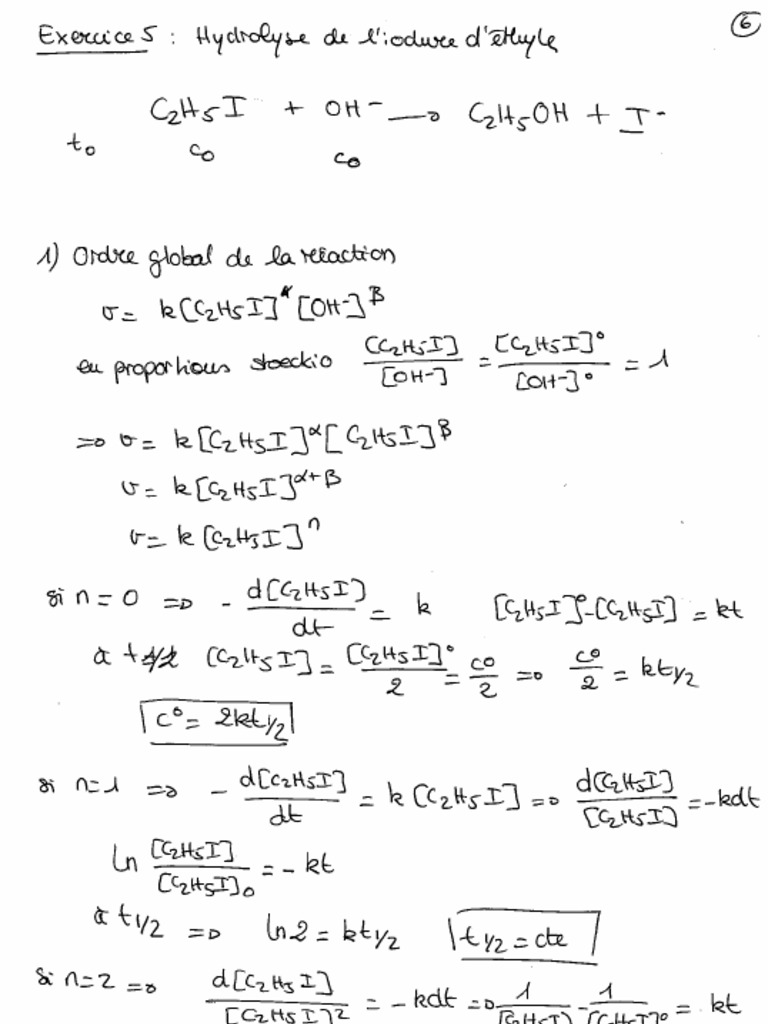 Exercice 5 : Hydrolyse de l'iodure d'éthyle
6
C2H5I + OH- → C2H5OH + I-
to co co
1) Ordre global de la réaction
v = k[C2H5I]^α [OH-]^β
en proportions stoeckio [C2H5I]/[OH-] = [C2H5I]°/[OH-]° = 1
=> v = k[C2H5I]^α [C2H5I]^β
v = k[C2H5I]^α+β
v = k[C2H5I]^n
si n = 0 => - d[C2H5I]/dt = k [C2H5I]° - [C2H5I] = kt
à t1/2 [C2H5I] = [C2H5I]°/2 = co/2 => co/2 = kt1/2
c° = 2kt1/2
si n=1 => - d[C2H5I]/dt = k[C2H5I] => d[C2H5I]/[C2H5I] = -kdt
ln [C2H5I]/[C2H5I]o = - kt
à t1/2 => ln2 = kt1/2 t1/2 = cte
Si n=2 => d[C2H5I]/[C2H5I]2 = - kdt => 1/[C2H5I] - 1/[C2H5I]° = kt